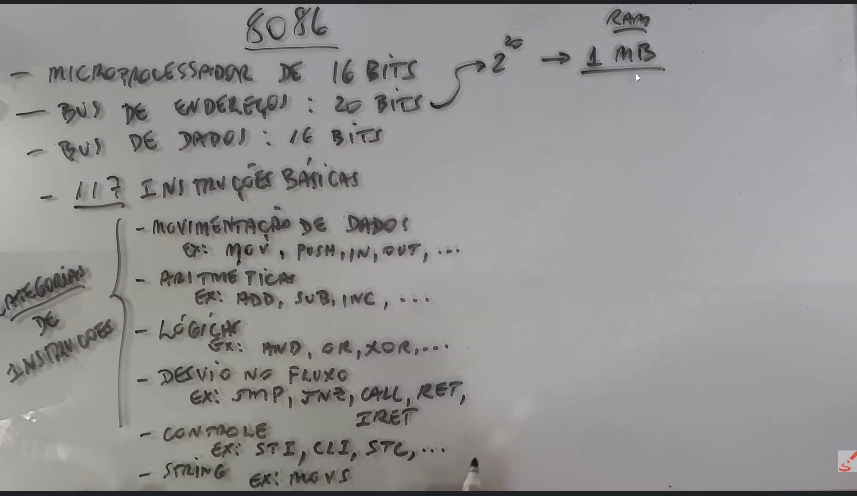 8086
RAM
- MICROPROCESSADOR DE 16 BITS
- BUS DE ENDEREÇOS : 20 BITS → 2^20 → 1 MB
- BUS DE DADOS : 16 BITS
- 117 INSTRUÇÕES BÁSICAS
CATEGORIAS
DE
INSTRUÇÕES
- MOVIMENTAÇÃO DE DADOS
EX: MOV, PUSH, IN, OUT, ...
- ARITMÉTICAS
EX: ADD, SUB, INC, ...
- LÓGICAS
EX: AND, OR, XOR, ...
- DESVIO NO FLUXO
EX: JMP, JNZ, CALL, RET,
IRET
- CONTROLE
EX: STI, CLI, STC, ...
- STRING EX: MOVS